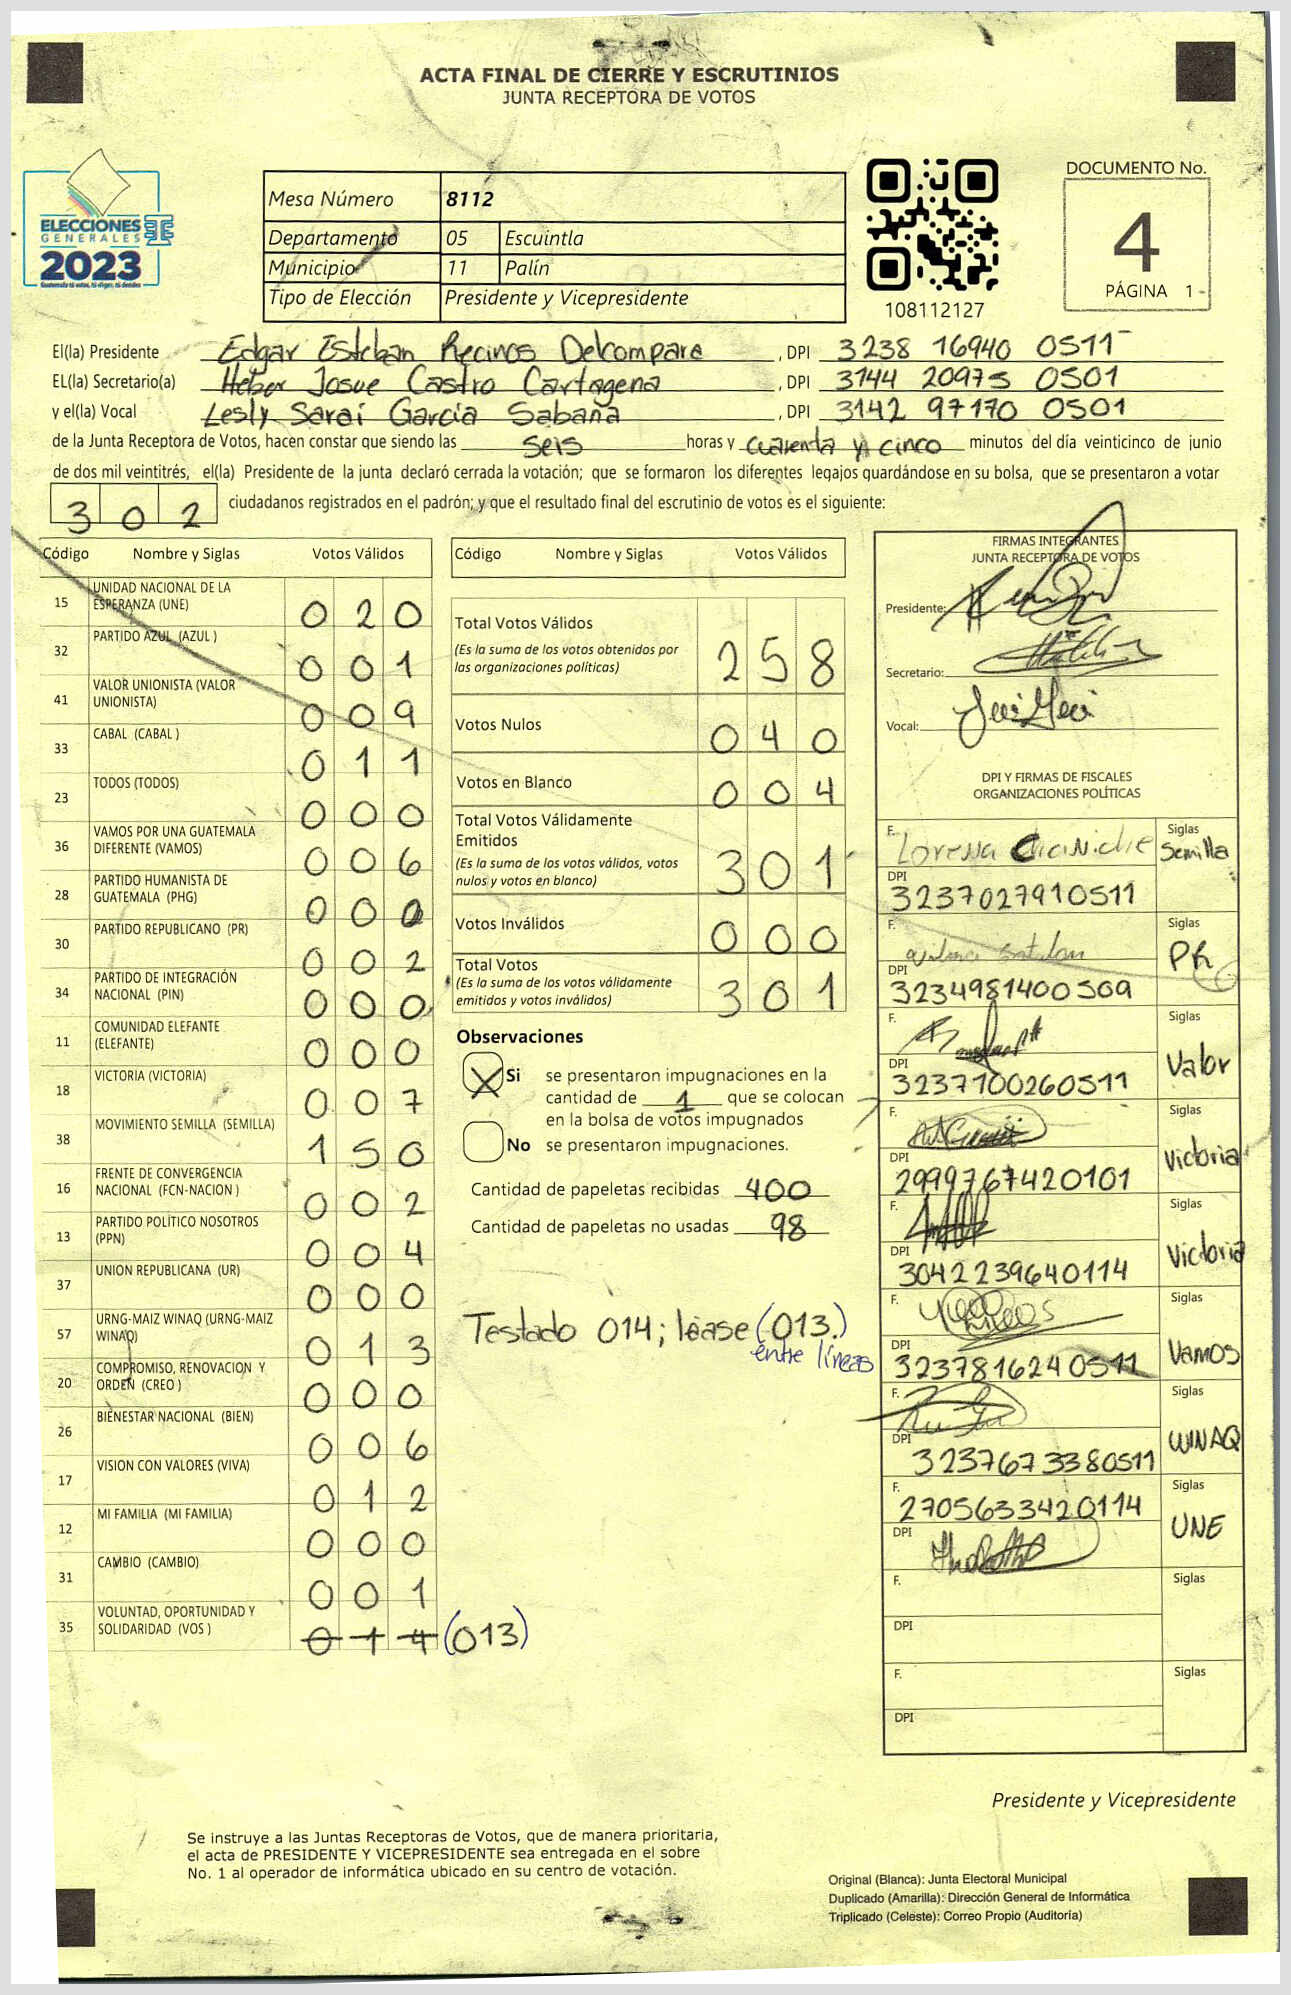 ACTA FINAL DE CIERRE Y ESCRUTINIOS
JUNTA RECEPTORA DE VOTOS
ELECCIONES
GENERALES
2023
Guatemala tú votas, tú eliges, tú decides
Mesa Número 8112
Departamento 05 Escuintla
Municipio 11 Palín
Tipo de Elección Presidente y Vicepresidente
108112127
DOCUMENTO No.
4
PÁGINA 1
El(la) Presidente Edgar Esteban Recinos Delcompare , DPI 3238 16940 0511
EL(la) Secretario(a) Heber Josue Castro Cartagena , DPI 3144 20975 0501
y el(la) Vocal Lesly Saraí García Sabaña , DPI 3142 97170 0501
de la Junta Receptora de Votos, hacen constar que siendo las seis horas y cuarenta y cinco minutos del día veinticinco de junio
de dos mil veintitrés, el(la) Presidente de la junta declaró cerrada la votación; que se formaron los diferentes legajos guardándose en su bolsa, que se presentaron a votar
302 ciudadanos registrados en el padrón; y que el resultado final del escrutinio de votos es el siguiente:
Código Nombre y Siglas Votos Válidos
15 UNIDAD NACIONAL DE LA ESPERANZA (UNE) 020
32 PARTIDO AZUL (AZUL ) 001
41 VALOR UNIONISTA (VALOR UNIONISTA) 009
33 CABAL (CABAL ) 011
23 TODOS (TODOS) 000
36 VAMOS POR UNA GUATEMALA DIFERENTE (VAMOS) 006
28 PARTIDO HUMANISTA DE GUATEMALA (PHG) 000
30 PARTIDO REPUBLICANO (PR) 002
34 PARTIDO DE INTEGRACIÓN NACIONAL (PIN) 000
11 COMUNIDAD ELEFANTE (ELEFANTE) 000
18 VICTORIA (VICTORIA) 007
38 MOVIMIENTO SEMILLA (SEMILLA) 150
16 FRENTE DE CONVERGENCIA NACIONAL (FCN-NACION ) 002
13 PARTIDO POLÍTICO NOSOTROS (PPN) 004
37 UNION REPUBLICANA (UR) 000
57 URNG-MAIZ WINAQ (URNG-MAIZ WINAQ) 013
20 COMPROMISO, RENOVACION Y ORDEN (CREO ) 000
26 BIENESTAR NACIONAL (BIEN) 006
17 VISION CON VALORES (VIVA) 012
12 MI FAMILIA (MI FAMILIA) 000
31 CAMBIO (CAMBIO) 001
35 VOLUNTAD, OPORTUNIDAD Y SOLIDARIDAD (VOS ) 014 (013)
Código Nombre y Siglas Votos Válidos
Total Votos Válidos 258
(Es la suma de los votos obtenidos por
las organizaciones políticas)
Votos Nulos 040
Votos en Blanco 004
Total Votos Válidamente
Emitidos 301
(Es la suma de los votos válidos, votos
nulos y votos en blanco)
Votos Inválidos 000
Total Votos 301
(Es la suma de los votos válidamente
emitidos y votos inválidos)
Observaciones
X Si se presentaron impugnaciones en la
cantidad de 1 que se colocan
en la bolsa de votos impugnados
No se presentaron impugnaciones.
Cantidad de papeletas recibidas 400
Cantidad de papeletas no usadas 98
Testado 014; léase (013.)
entre líneas
FIRMAS INTEGRANTES
JUNTA RECEPTORA DE VOTOS
Presidente:
Secretario:
Vocal:
DPI Y FIRMAS DE FISCALES
ORGANIZACIONES POLÍTICAS
F. Lorena Siglas Semilla
DPI 3237027910511
F. Siglas PR
DPI 3234981400509
F. Siglas Valor
DPI 3237100260511
F. Siglas Victoria
DPI 2999767420101
F. Siglas Victoria
DPI 3042239640114
F. Siglas Vamos
DPI 3237816240511
F. Siglas WINAQ
DPI 3237673380511
F. 2705633420114 Siglas UNE
DPI
F. Siglas
DPI
F. Siglas
DPI
Presidente y Vicepresidente
Se instruye a las Juntas Receptoras de Votos, que de manera prioritaria,
el acta de PRESIDENTE Y VICEPRESIDENTE sea entregada en el sobre
No. 1 al operador de informática ubicado en su centro de votación.
Original (Blanca): Junta Electoral Municipal
Duplicado (Amarilla): Dirección General de Informática
Triplicado (Celeste): Correo Propio (Auditoría)